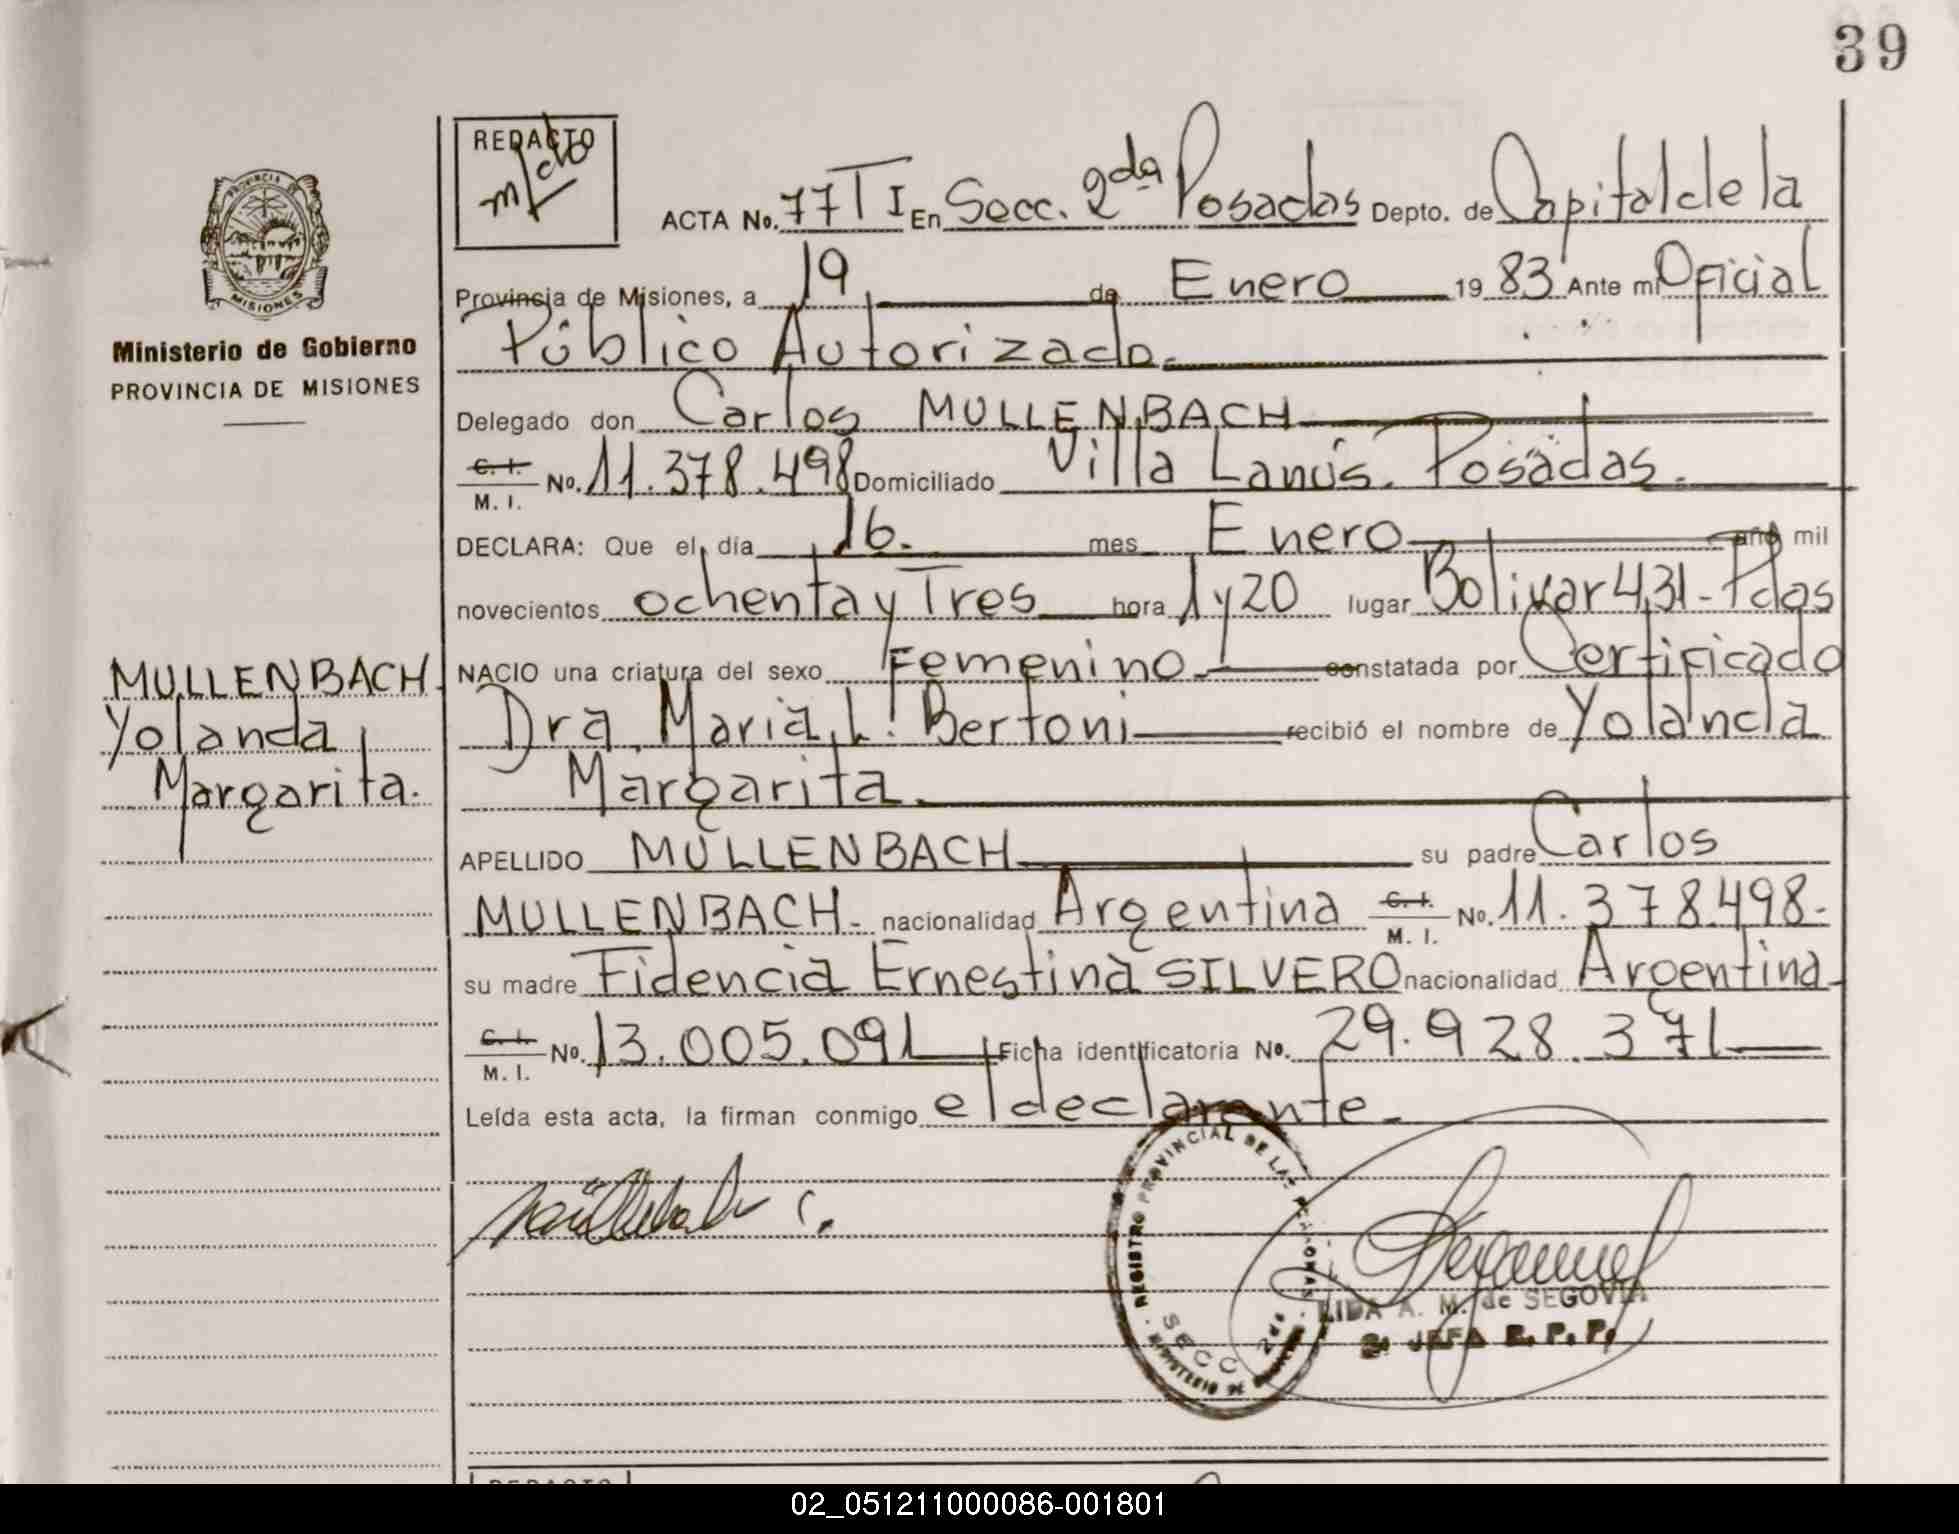 39
REDACTO
ACTA No. 77 T I En Secc. 2da Posadas Depto. de Capital de la
Provincia de Misiones, a 19 de Enero 19 83 Ante mi Oficial
Público Autorizado.
Delegado don Carlos MULLENBACH
C. I. M. I. No. 11.378.498 Domiciliado Villa Lanús. Posadas.
DECLARA: Que el día 16. mes Enero año mil
novecientos ochenta y Tres hora 1 y 20 lugar Bolivar 431 - Pdas
NACIO una criatura del sexo Femenino. constatada por Certificado
Dra. Maria, L. Bertoni recibió el nombre de Yolanda
Margarita.
APELLIDO MULLENBACH su padre Carlos
MULLENBACH - nacionalidad Argentina C. I. M. I. No. 11.378.498-
su madre Fidencia Ernestina SILVERO nacionalidad Argentina
C. I. M. I. No. 13.005.091 Ficha identificatoria No. 29.928.371
Leída esta acta, la firman conmigo el declarante-
PROVINCIA DE
MISIONES
Ministerio de Gobierno
PROVINCIA DE MISIONES
MULLENBACH
Yolanda
Margarita.
REGISTRO PROVINCIAL DE LAS PERSONAS
SECC 2da
MINISTERIO DE GOBIERNO
LIDA A. M. de SEGOVIA
JEFA R. P. P.
REDACTO
02_051211000086-001801